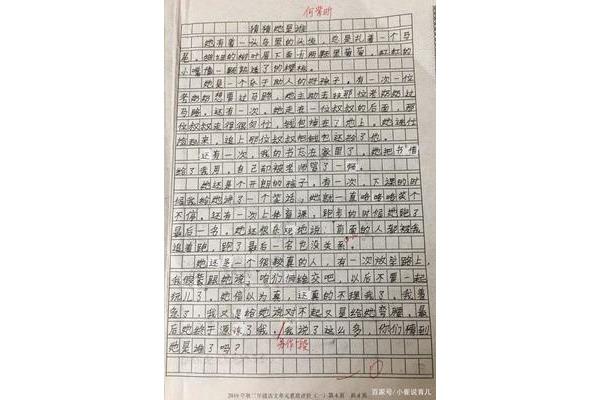 何常昕
猜猜她是谁
她有着一头乌黑的头发，总是扎着一个马
尾。细细的柳叶眉下面有两颗黑葡萄，红红的
小嘴像一颗熟透了的樱桃。
她是一个乐于助人的好孩子。有一次，一位
老奶奶想要过马路，她主动去扶那位老奶奶过
马路。还有一次，她走在一位叔叔的后面，那
位叔叔走得很匆忙，钱包掉在了地上。她连忙
捡起来，追上那位叔叔把钱包还给了他。
还有一次，我的书忘在家里了，她把书借
给了我用，自己却被老师骂了一顿。
她还是个开朗的孩子，有一次，下课的时
候我给她讲了一个笑话，她就一直哈哈哈笑个
不停。还有一次上体育课，跑步的时候她跑了
最后一名。她还很乐观地说：前面的人都被我
追着跑，跑了最后一名也没关系。
她还是一个很较真的人，有一次放学路上，
我假装跟她说：咱们俩绝交吧，以后不要一起
玩儿了。她信以为真，还真的不理我了，我着
急了，我又是给她说对不起又是给她弯腰，最
后她终于原谅了我。我说了这么多，你们猜到
她是谁了吗？
2019年秋三年级语文单元素质评价（一）第4页 共4页
百家号/小新说育儿